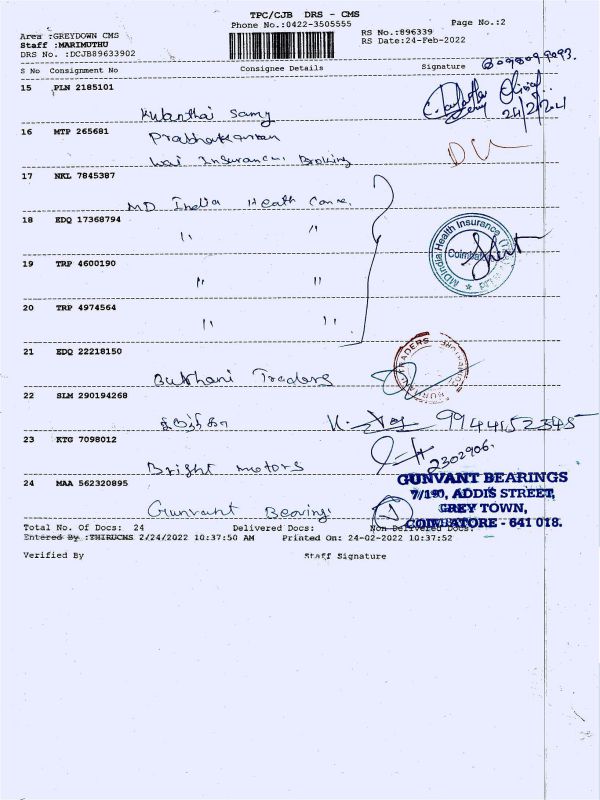 TPC/CJB DRS - CMS
Phone No.:0422-3505555 Page No.:2
Area :GREYDOWN CMS RS No.:896339
Staff :MARIMUTHU RS Date:24-Feb-2022
DRS No. :DCJB89633902
S No Consignment No Consignee Details Signature
15 PLN 2185101
Kulanthai Samy
16 MTP 265681
Prabhakaran
Insurance Broking
17 NKL 7845387
MD India Heath Care
18 EDQ 17368794
" "
MDIndia Health Insurance
Coimbatore
19 TRP 4600190
" "
20 TRP 4974564
" "
21 EDQ 22218150
Burhani Traders
BURHANI TRADERS
22 SLM 290194268
9944152345
23 KTG 7098012
2302906.
Bright motors
24 MAA 562320895
Gunvant Bearing
GUNVANT BEARINGS
7/190, ADDIS STREET,
GREY TOWN,
COIMBATORE - 641 018.
Total No. Of Docs: 24 Delivered Docs: Non Delivered Docs:
Entered By :THIRUCMS 2/24/2022 10:37:50 AM Printed On: 24-02-2022 10:37:52
Verified By Staff Signature